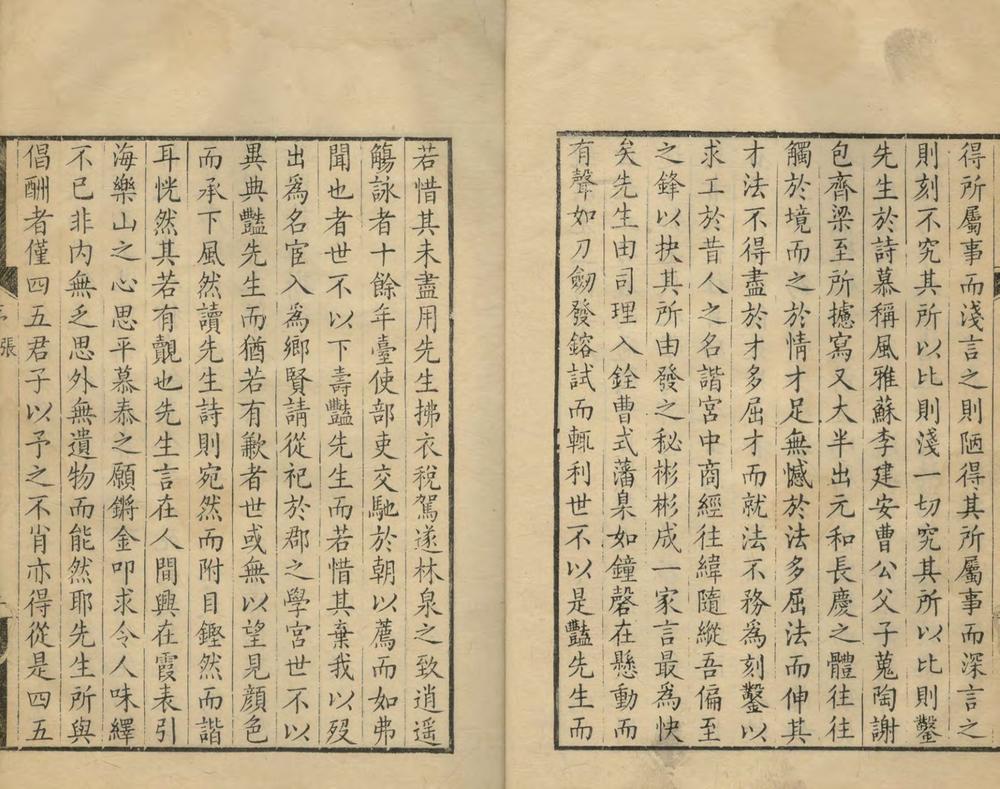 得所屬事而淺言之則陋得其所屬事而深言之
則刻不究其所以比則淺一切究其所以比則鑿
先生於詩慕稱風雅蘇李建安曹公父子蒐陶謝
包齊梁至所摅寫又大半出元和長慶之體往往
觸於境而之於情才足無憾於法多屈法而伸其
才法不得盡於才多屈才而就法不務為刻鑿以
求工於昔人之名諧宮中商經往緯隨縱吾偏至
之鋒以抉其所由發之秘彬彬成一家言最為快
矣先生由司理入銓曹式藩臬如鐘磬在懸動而
有聲如刀劒發鎔試而輒利世不以是豔先生而
若惜其未盡用先生拂衣稅駕遂林泉之致逍遥
觴詠者十餘年臺使部吏交馳於朝以薦而如弗
聞也者世不以下壽豔先生而若惜其棄我以歿
出為名宦入為鄉賢請從祀於郡之學宮世不以
異典豔先生而猶若有歉者世或無以望見顏色
而承下風然讀先生詩則宛然而附目鏗然而諧
耳恍然其若有覿也先生言在人間興在霞表引
海樂山之心思平慕泰之願鏘金叩求令人味繹
不已非内無乏思外無遺物而能然耶先生所與
倡酬者僅四五君子以予之不肖亦得從是四五
張